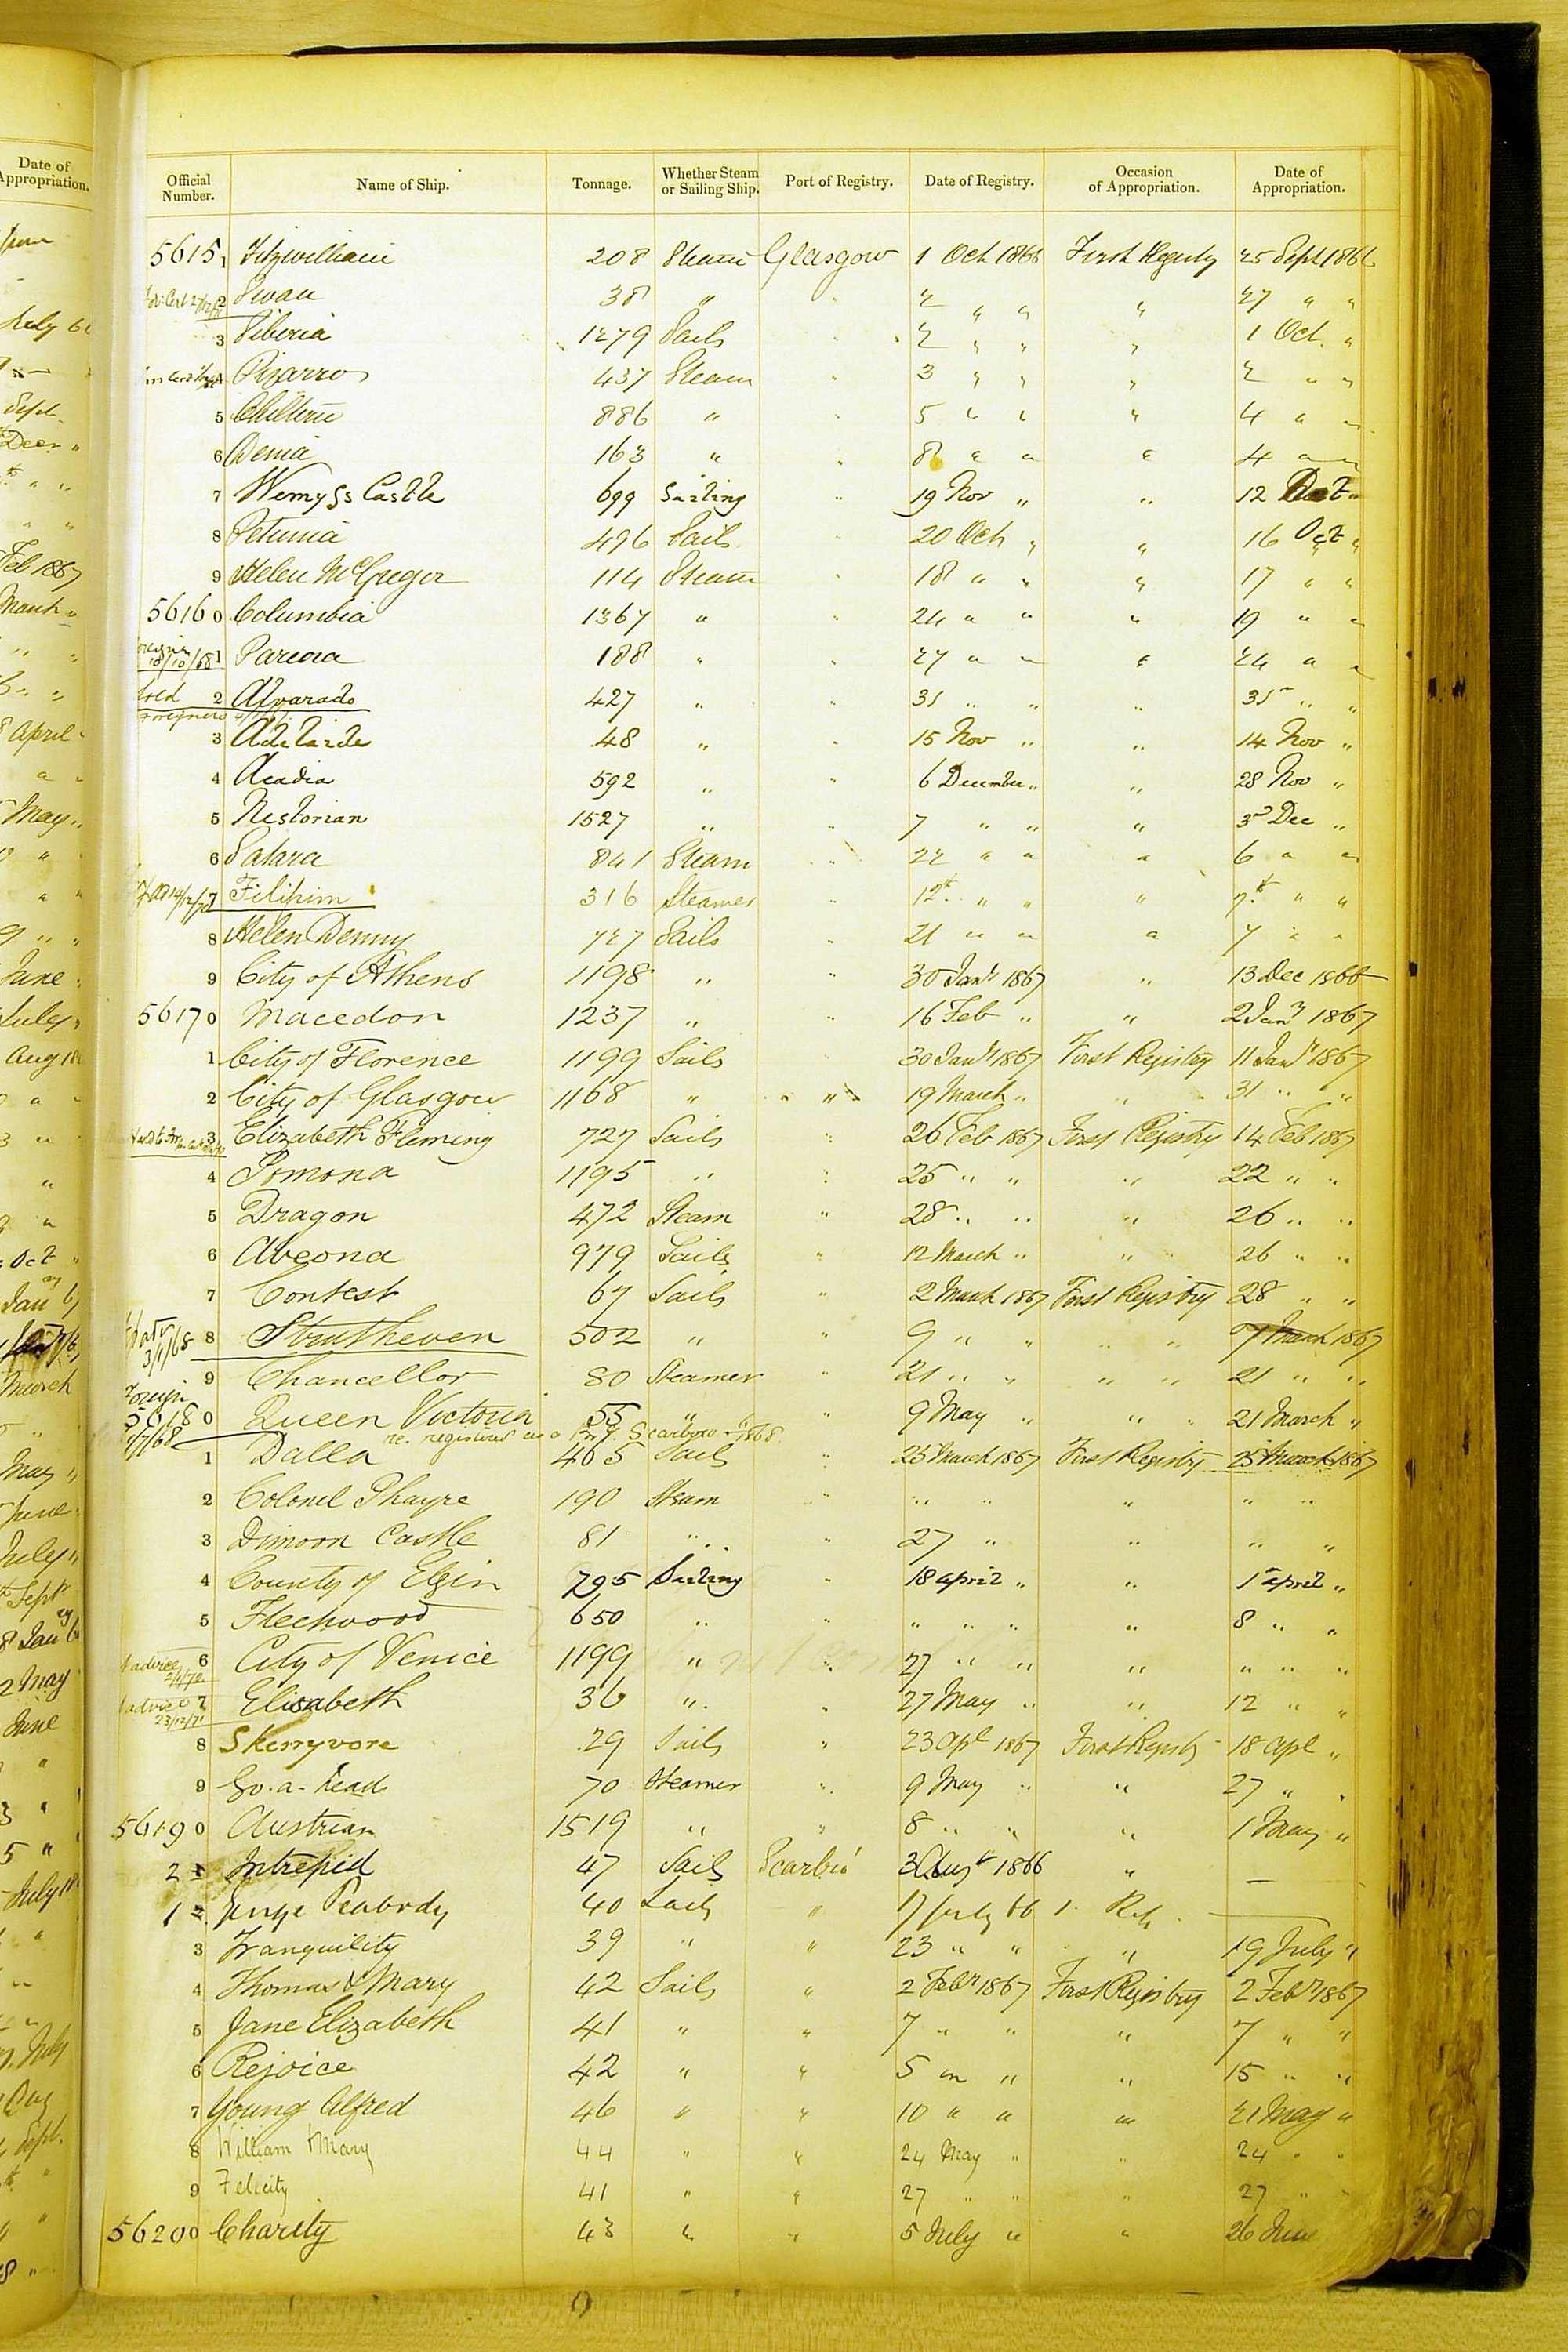 Date of
Appropriation.
Official
Number.
Name of Ship.
Tonnage.
Whether Steam
or Sailing Ship.
Port of Registry.
Date of Registry.
Occasion
of Appropriation.
Date of
Appropriation.
5615 1 Fitzwilliam 208 Steam Glasgow 1 Oct 1866 First Registy 25 Sept 1866
2 Swan 38 " " 2 " " " 27 " "
3 Siberia 1279 Sails " 2 " " " 1 Oct. "
4 Pizarro 437 Steam " 3 " " " 2 " "
5 Chiltern 886 " " 5 " " " 4 " "
6 Denia 163 " " 8 " " " 4 " "
7 Wemyss Castle 699 Sailing " 19 Nov " " 12 Oct "
8 Petunia 496 Sails " 20 Oct " " 16 Oct "
9 Helen McGregor 114 Steam " 18 " " " 17 " "
5616 0 Columbia 1367 " " 24 " " " 19 " "
18/10/68 1 Pareora 188 " " 27 " " " 24 " "
2 Alvarado 427 " " 31 " " " 31 " "
3 Adelaide 48 " " 15 Nov " " 14 Nov "
4 Acadia 592 " " 6 December " " 28 Nov "
5 Nestorian 1527 " " 7 " " " 3 Dec "
6 Satara 841 Steam " 22 " " " 6 " "
7 Filipim 316 Steamer " 12th " " " 7th " "
8 Helen Denny 727 Sails " 21 " " " 7 " "
9 City of Athens 1198 " " 30 Jany 1867 " 13 Dec 1866
5617 0 Macedon 1237 " " 16 Feb " " 2 Jany 1867
1 City of Florence 1199 Sails 30 Jany 1867 First Registry 11 Jany 1867
2 City of Glasgow 1168 " " " 19 March " " 31 " "
3 Elizabeth Fleming 727 Sails " 26 Feb 1867 First Registry 14 Feb 1867
4 Pomona 1195 " " 25 " " " 22 " "
5 Dragon 472 Steam " 28 " " " 26 " "
6 Abeona 979 Sails " 12 March " " " 26 " "
7 Contest 67 Sails " 2 March 1867 First Registry 28 " "
3/1/68 8 502 " " 9 " " " " 7 March 1867
9 Chancellor 80 Steamer " 21 " " " " 21 " "
Foreign
5618 0 Queen Victoria 55 " " 9 May " " " 21 March "
/7/68 re. registered as a Scarboro 1868
1 Dalla 465 Sails " 25 March 1867 First Registry 25 March 1867
2 Colonel Phayre 190 Steam " " " " " "
3 Dimoon Castle 81 " " 27 " " " "
4 County of Elgin 795 Sailing " 18 april " " 1 april "
5 Fleetwood 650 " " " " " " 8 " "
6 City of Venice 1199 " " 27 " " " " " "
advice 7 Elisabeth 36 " " 27 May " " 12 " "
23/12/71
8 Skerryvore 29 Sails " 23 Apl 1867 First Registy 18 Apl "
9 Go-a-head 70 Steamer " 9 May " " 27 " "
5619 0 Austrian 1519 " " 8 " " " 1 May "
2 Intrepid 47 Sails Scarbro' 3 Augt 1866 " —
1 Peabody 40 Sails " 17 July 66 1. —
3 Tranquility 39 " " 23 " " " 19 July "
4 Thomas & Mary 42 Sails " 2 Feby 1867 First Registry 2 Feby 1867
5 Jane Elizabeth 41 " " 7 " " " 7 " "
6 Rejoice 42 " " 5 " " " 15 " "
7 Young Alfred 46 " " 10 " " " 21 May "
8 William & Mary 44 " " 24 May " " 24 " "
9 Felicity 41 " " 27 " " " 27 " "
5620 0 Charity 43 " " 5 July " " 26 June